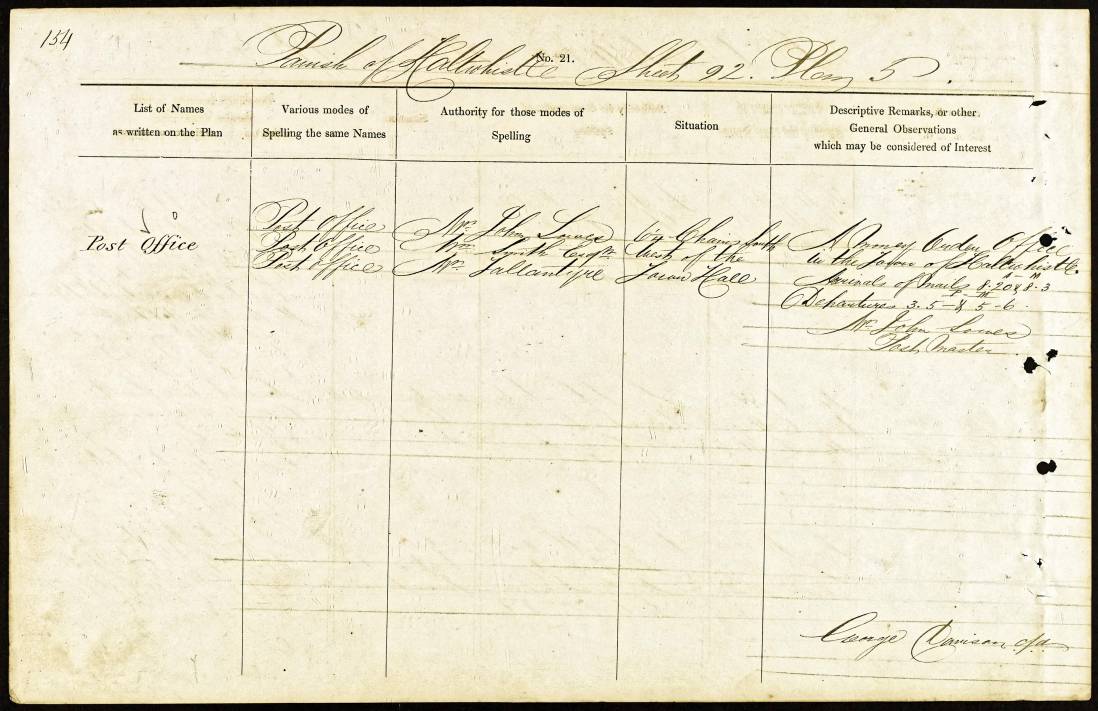 154
No. 21.
Parish of Haltwhistle Sheet 92. Plan 5.
List of Names
as written on the Plan
Various modes of
Spelling the same Names
Authority for those modes of
Spelling
Situation
Descriptive Remarks, or other
General Observations
which may be considered of Interest
Post Office
Post Office
Post Office
Post Office
Mr. John Lowes
Wm. Smith Esqre
Mr. Tallantyre
Chains South
West of the
Town Hall
A Money Order Office
in the Town of Haltwhistle.
Arrivals of Mails 8.20 & 8.3
Departures 3.5 & 5-6
Mr. John Lowes
Post Master
George Davison c/a